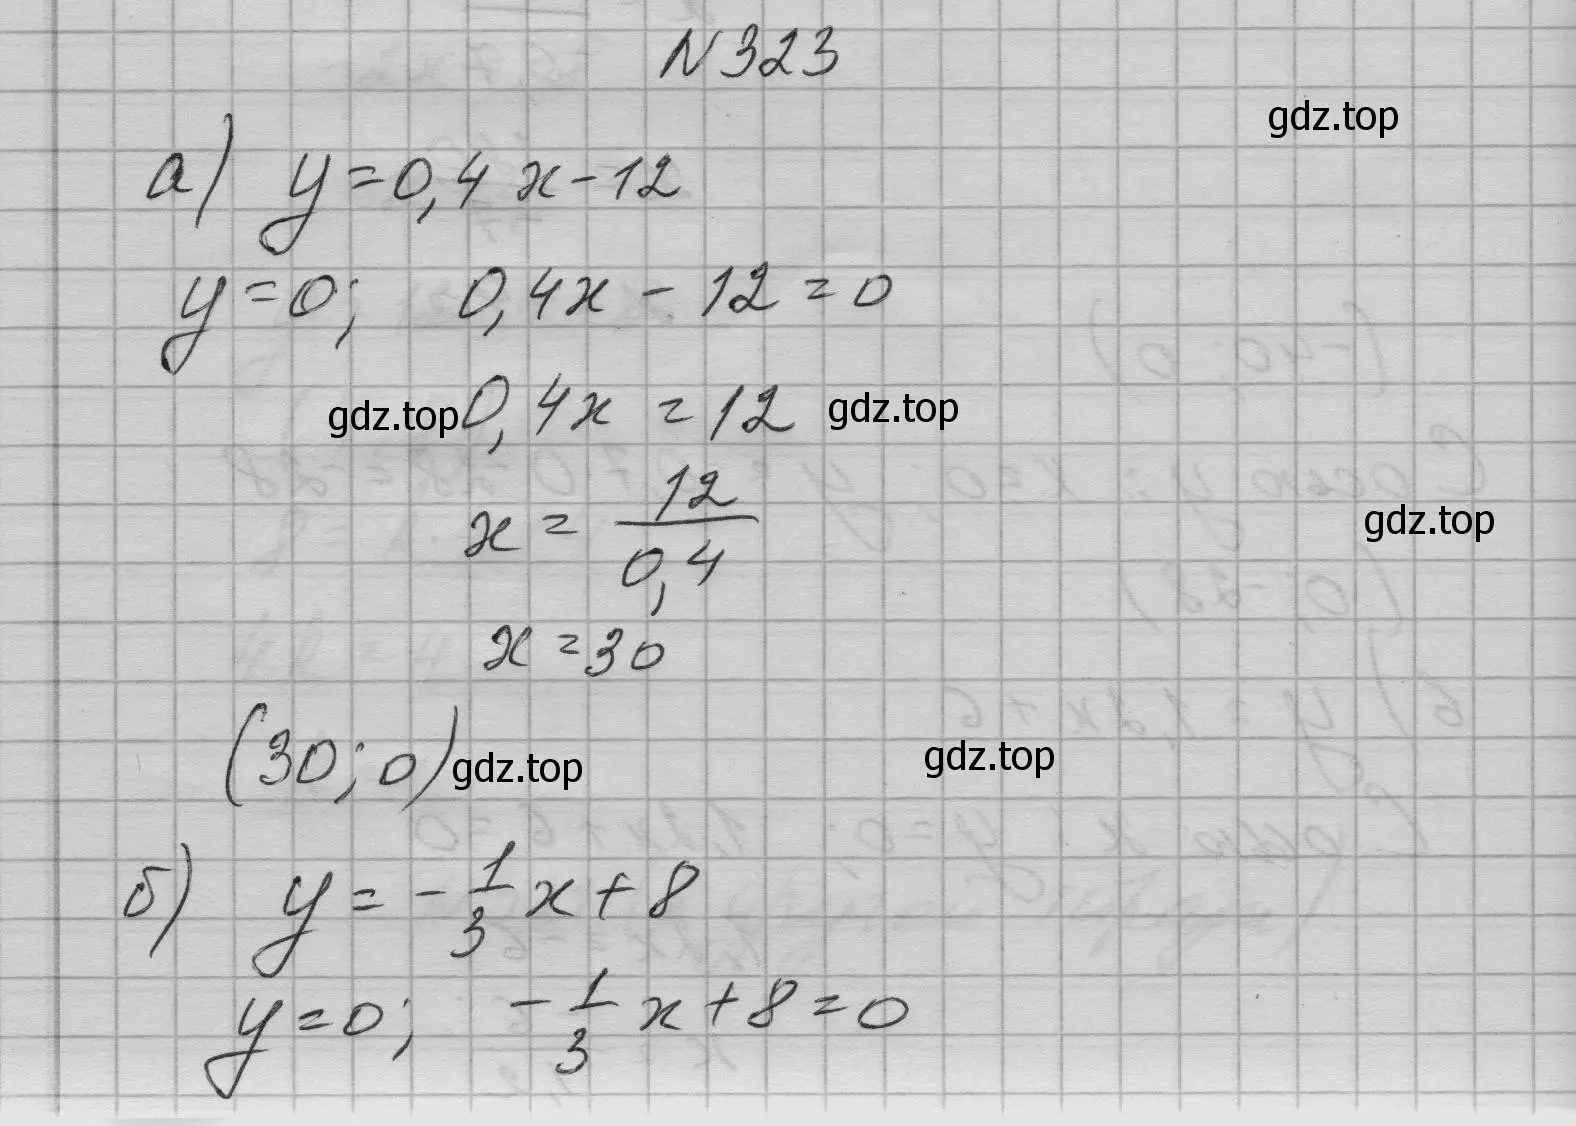 N 323
gdz.top
а) y=0,4x-12
y=0; 0,4x-12=0
gdz.top 0,4x=12 gdz.top
x=12/0,4
gdz.top
x=30
(30; 0) gdz.top gdz.top
б) y=-1/3x+8
y=0; -1/3x+8=0